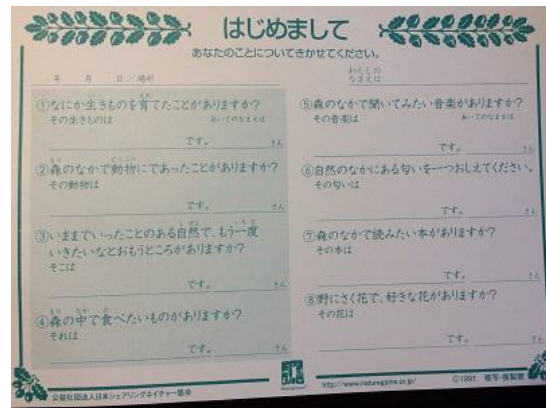 はじめまして
あなたのことについてきかせてください。
年 月 日／場所
わたしの
なまえは
①なにか生きものを育てたことがありますか?
その生きものは
あいてのなまえは
です。 さん
②森のなかで動物にであったことがありますか?
その動物は
です。 さん
③いままでいったことのある自然で、もう一度
いきたいなとおもうところがありますか?
そこは
です。 さん
④森の中で食べたいものがありますか?
それは
です。 さん
⑤森のなかで聞いてみたい音楽がありますか?
その音楽は
あいてのなまえは
です。 さん
⑥自然のなかにある匂いを一つおしえてください。
その匂いは
です。 さん
⑦森のなかで読みたい本がありますか?
その本は
です。 さん
⑧野にさく花で、好きな花がありますか?
その花は
です。 さん
公益社団法人日本シェアリングネイチャー協会
http://www.naturegame.or.jp/
©1991 複写・複製禁